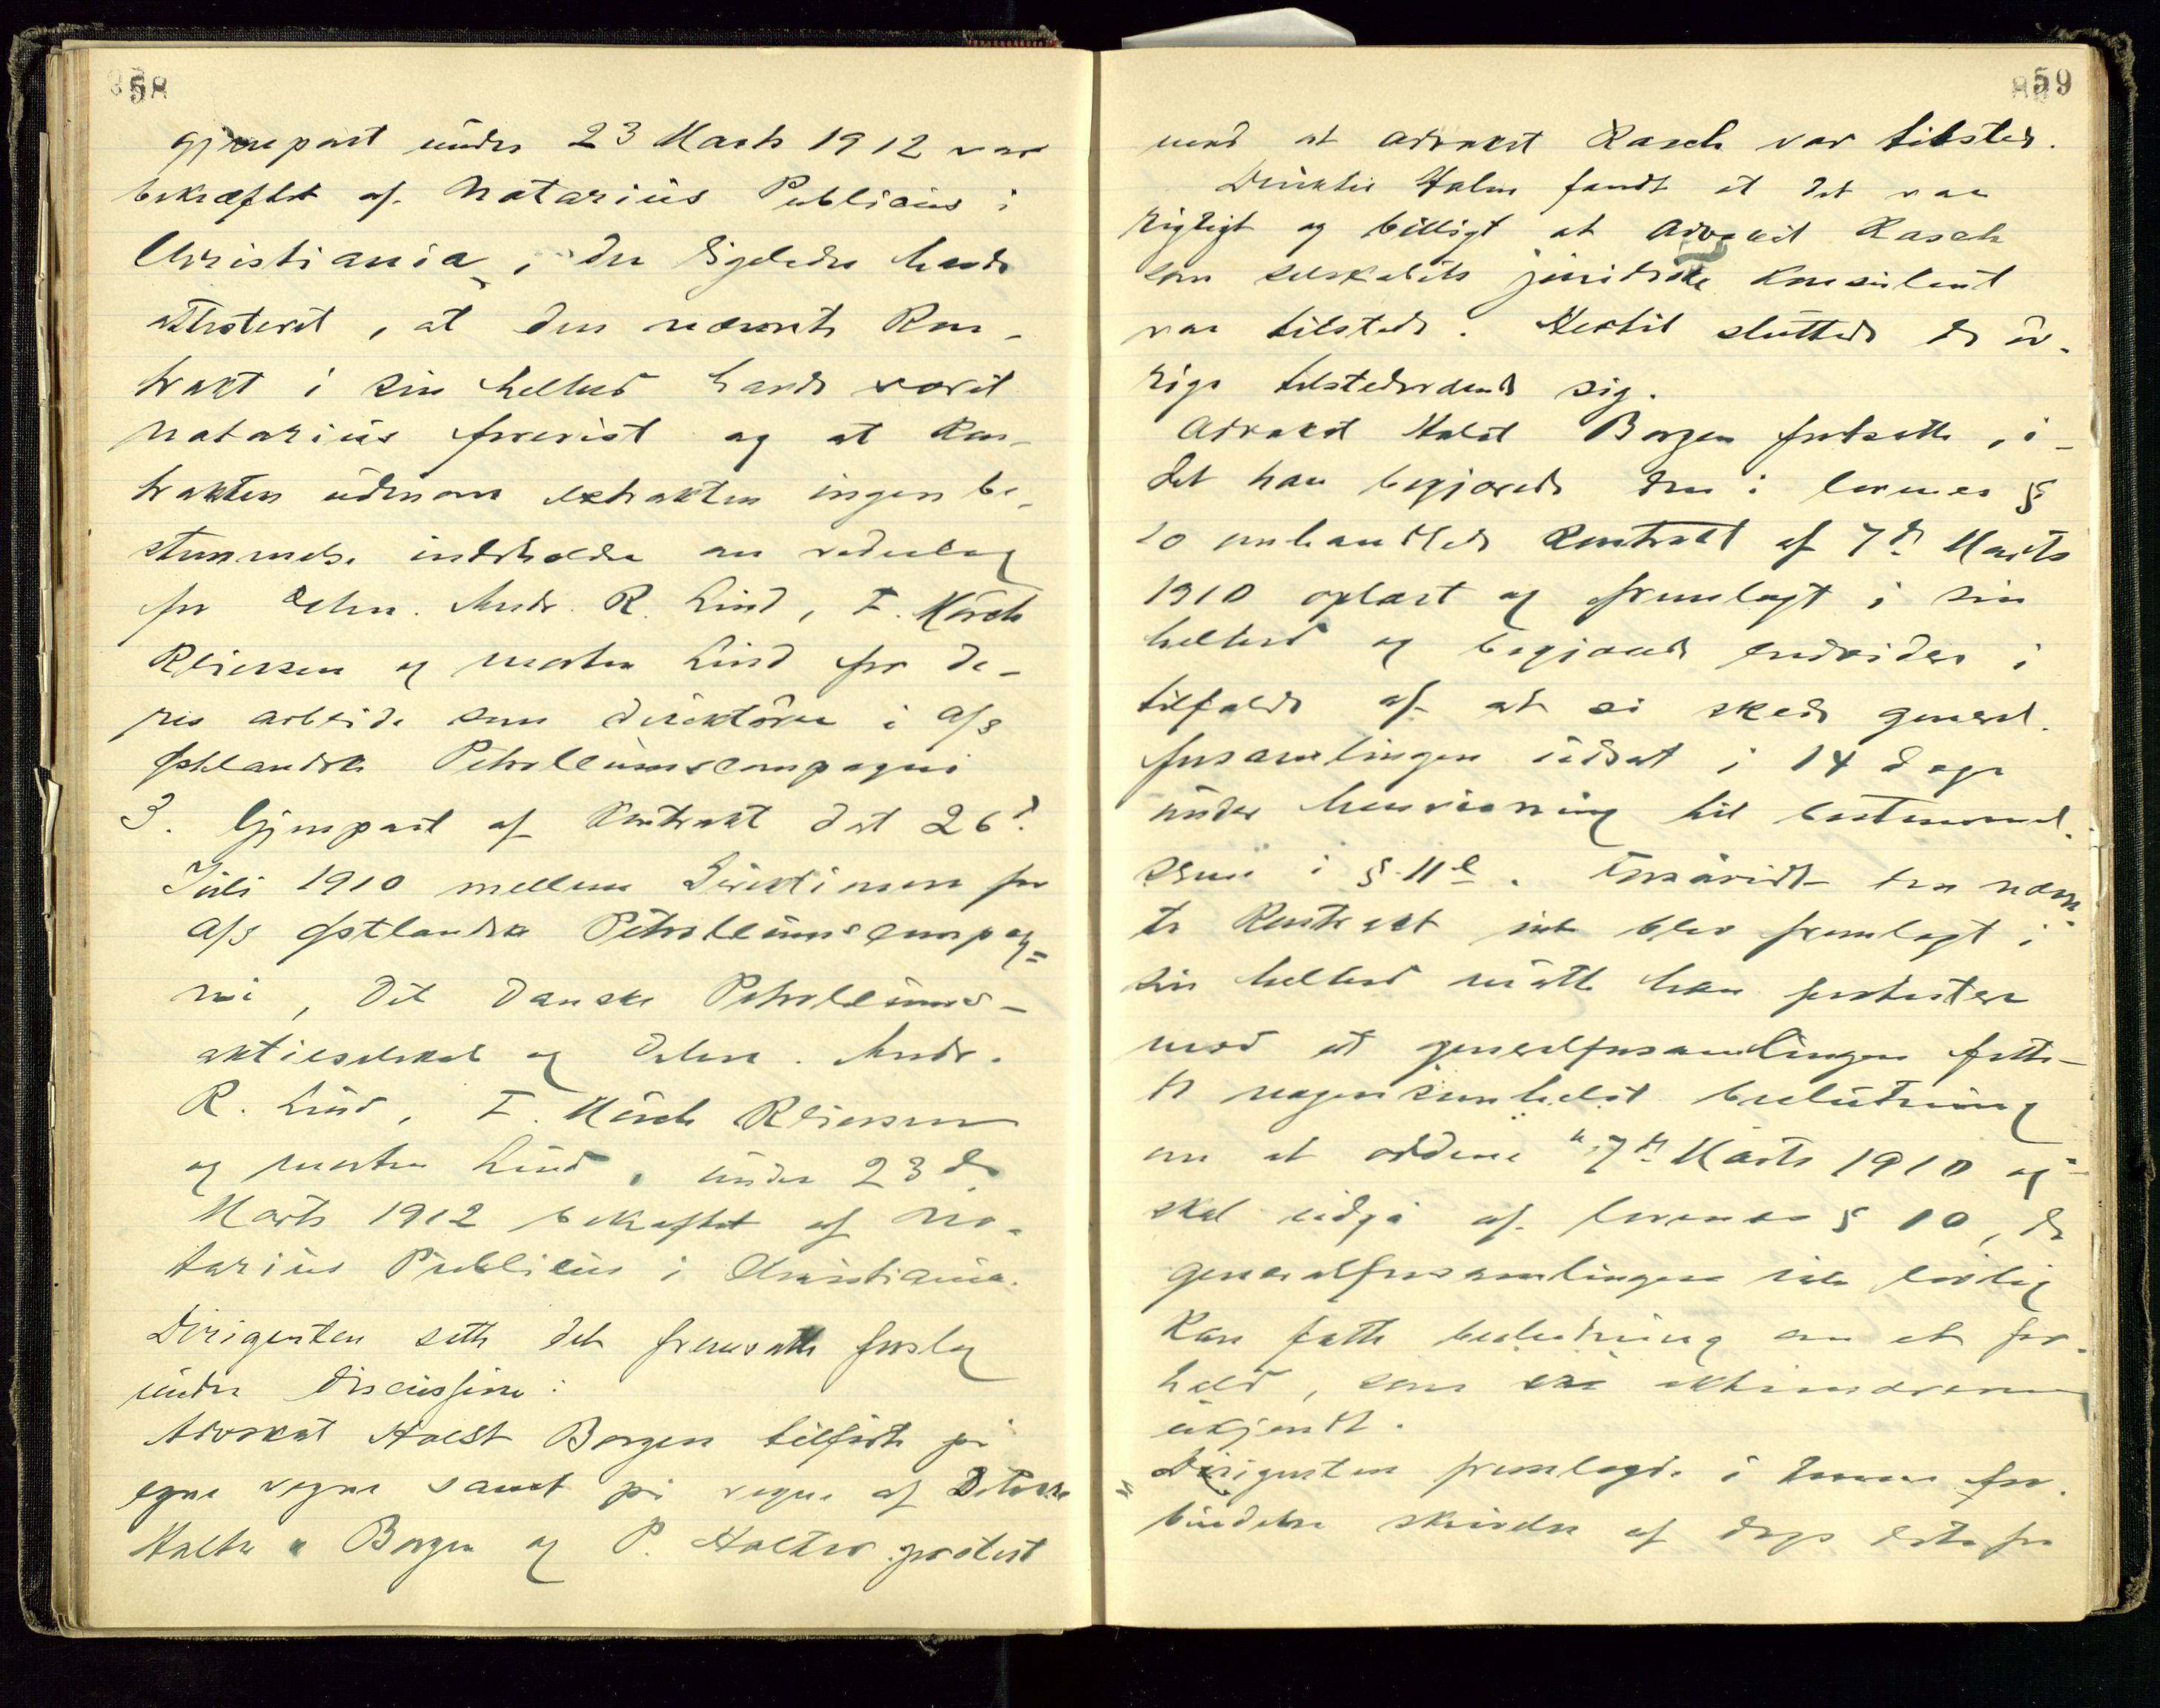 58
gjenpart under 23 Marts 1912 var
bekræftet af Notarius Publicus i
Christiania, der ligeledes havde
attesteret, at den nævnte Kon-
trakt i sin helhed havde været
Notarius forevist og at Kon-
trakten udenom extrakten ingen be-
stemmelse indeholder om vederlag
for dHrr. Andr. R. Lind, F. Mørch
Reiersen og Morten Lind for de-
res arbeide som direktører i A/S
Østlandske Petroleumscompagni
3. Gjenpart af Kontrakt dat 26d.
Juli 1910 mellem Direktionen for
A/S Østlandske Petroleumscompag=
ni, Det Danske Petroleums-
aktieselskab og dHrr. Andr.
R. Lind, F. Mørch Reiersen
og Morten Lind, under 23de
Marts 1912 bekræftet af No-
tarius Publicus i Christiania.
Dirigenten satte det fremsatte forslag
under Discussion:
Advokat Holst Borgen tilførte på
egne vegne samt på vegne af
Halter & Borgen og P. Holter protest
59
mod at advokat Rasch var tilstede.
Direktør Holm fandt at det var
rigtigt og billigt at Advokat Rasch
som selskabets juridiske Konsulent
var tilstede. Hertil sluttede de øv-
rige tilstedeværende sig.
Advokat Holst Borgen fortsatte, i-
det han begjærede den i lovenes §
10 omhandlede Kontrakt af 7de Marts
1910 oplæst og fremlagt i sin
helhed og begjærede endvidere i
tilfælde af at ei skede general-
forsamlingen udsat i 14 dage
under henvisning til bestemmel-
serne i § 11e. Forsåvidt den nævn-
te Kontrakt ikke blev fremlagt i
sin helhed måtte han protestere
mod at generalforsamlingen fatte-
de nogensomhelst beslutning
om at ordene "7de Marts 1910 og"
skal udgå af lovenes § 10, da
generalforsamlingen ikke lovlig
kan fatte beslutning om et for-
hold, som er aktionærerne
ukjendt.
Dirigenten fremlagde i denne for-
bindelse skrivelse af dags dato fra